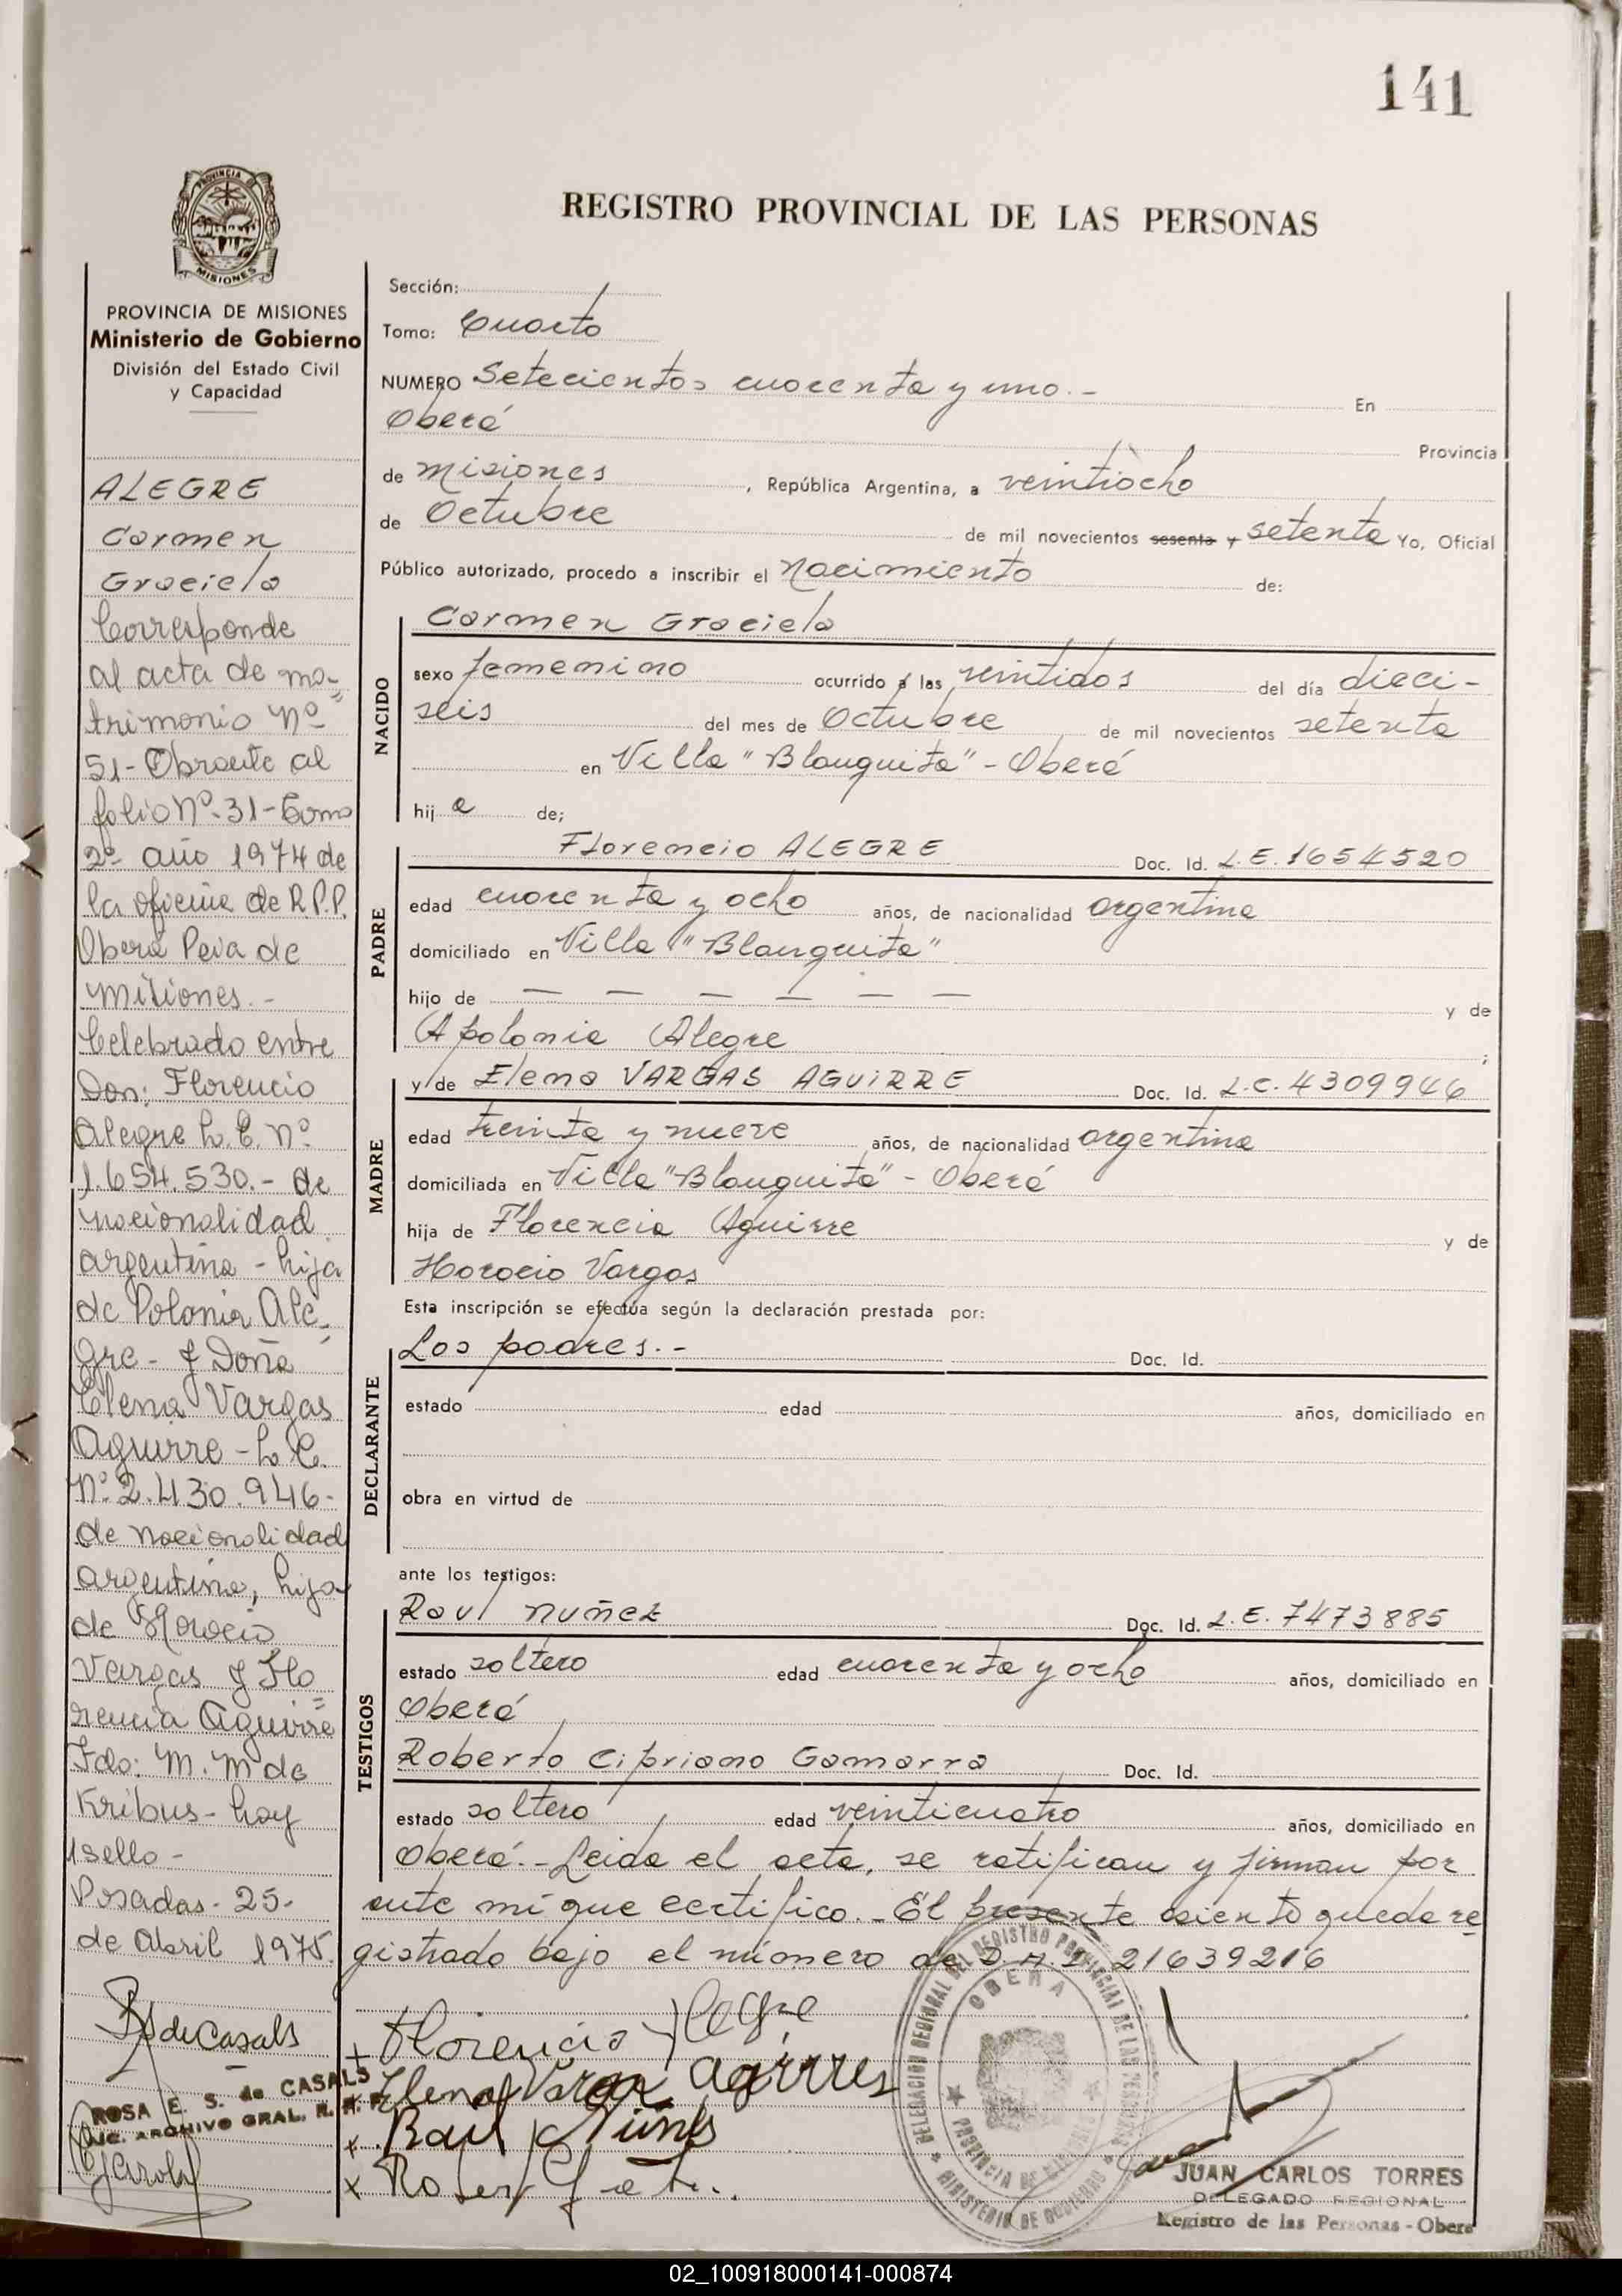 141
REGISTRO PROVINCIAL DE LAS PERSONAS
PROVINCIA DE MISIONES
Ministerio de Gobierno
División del Estado Civil
y Capacidad
ALEGRE
Carmen
Graciela
Corresponde
al acta de ma-
trimonio Nº
51- Obrante al
folio Nº 31- Tomo
2º año 1974 de
la oficina de R.P.P.
Oberá Pcia de
Misiones.-
Celebrado entre
Don: Florencio
Alegre L.E. Nº
1.654.530.- de
nacionalidad
argentina - hijo
de Polonia Ale-
gre - y Doña
Elena Vargas
Aguirre - L.C.
Nº 2.430.946-
de nacionalidad
argentina, hija
de Horacio
Vargas y Flo
rencia Aguirre
Fdo: M. M de
Kribus - hay
1 sello -
Posadas - 25-
de Abril 1975.
ROSA E. S. de CASALS
ARCHIVO GRAL. R. P. P.
Sección:
Tomo: Cuarto
NUMERO Setecientos cuarenta y uno.- En
Oberá Provincia
de Misiones, República Argentina, a veintiocho
de Octubre de mil novecientos sesenta y setenta Yo, Oficial
Público autorizado, procedo a inscribir el Nacimiento de:
NACIDO
Carmen Graciela
sexo femenino ocurrido a las veintidos del día dieci-
seis del mes de Octubre de mil novecientos setenta
en Villa "Blanquita" - Oberá
hij a de;
PADRE
Florencio ALEGRE Doc. Id. L.E. 1654520
edad cuarenta y ocho años, de nacionalidad argentina
domiciliado en Villa "Blanquita"
hijo de — — — — — — y de
Apolonia Alegre;
MADRE
y de Elena VARGAS AGUIRRE Doc. Id. L.C. 4309946
edad treinta y nueve años, de nacionalidad argentina
domiciliada en Villa "Blanquita" - Oberá
hija de Florencia Aguirre y de
Horacio Vargas
Esta inscripción se efectúa según la declaración prestada por:
DECLARANTE
Los padres.- Doc. Id.
estado edad años, domiciliado en
obra en virtud de
ante los testigos:
TESTIGOS
Raul Nuñez Doc. Id. L.E. 7473885
estado soltero edad cuarenta y ocho años, domiciliado en
Oberá
Roberto Cipriano Gamarra Doc. Id.
estado soltero edad veinticuatro años, domiciliado en
Oberá.- Leida el acta, se ratifican y firman por
ante mi que certifico.- El presente asiento queda re
gistrado bajo el número de D.N.I. 21639216
Florencio Alegre
Elena Vargas Agirres
Raul Nunes
DELEGACION REGIONAL DEL REGISTRO PROVINCIAL DE LAS PERSONAS
OBERA
PROVINCIA DE MISIONES
MINISTERIO DE GOBIERNO
JUAN CARLOS TORRES
DELEGADO REGIONAL
Registro de las Personas - Oberá
02_100918000141-000874